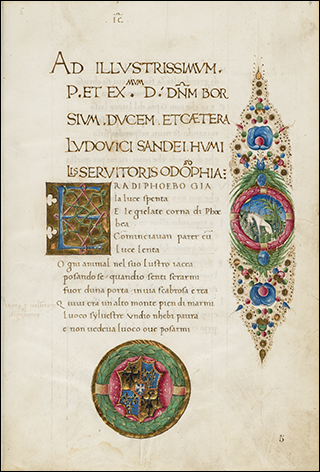 IC
AD ILLUSTRISSIMUM.
P. ET EX.MUM D. DNM BOR
SIUM. DUCEM. ET CAETERA
LUDOVICI SANDEI. HUMI
LIS SERVITORIS ODOSOPHIA:
ERA DI PHOEBO GIA
la luce spenta
E le gielate corna di Phoe
bea
Cominciavan parer cum
Luce lenta
Ogni animal nel suo lustro iacea
posando se quando senti serarmi
fuor duna porta in via scabrosa e rea
Qui era un alto monte pien di marmi
luoco sylvestre undio nhebi paura
e non vedeva luoco ove posarmi
5